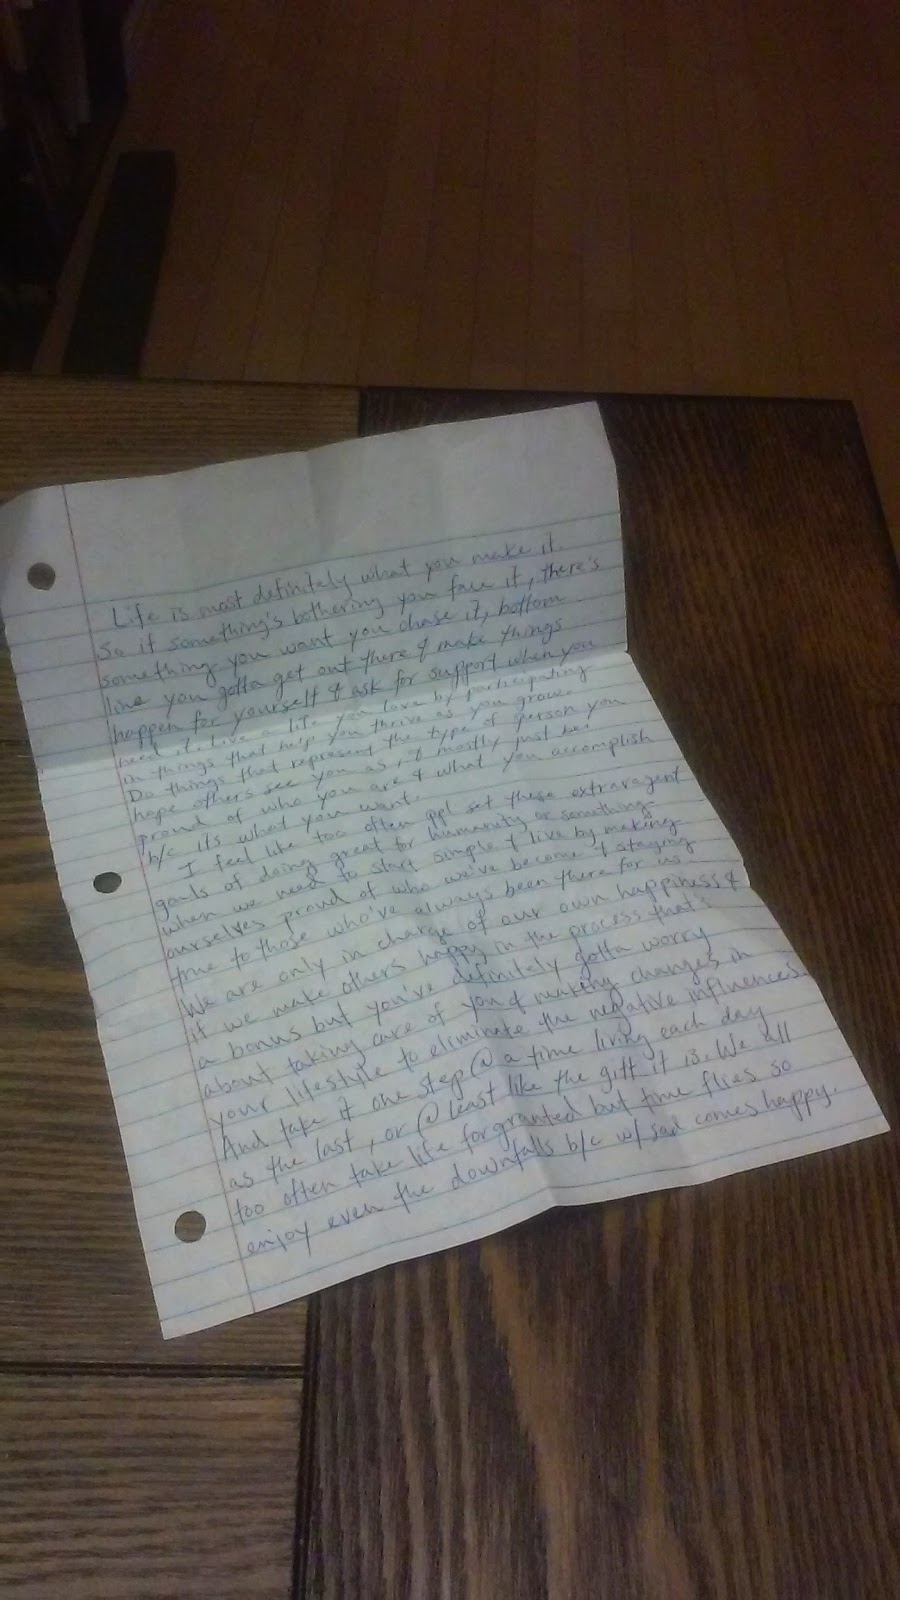 Life is most definitely what you make it.
So if something's bothering you face it, there's
something you want you chase it, bottom
line you gotta get out there & make things
happen for yourself & ask for support when you
need it. Live a life you love by participating
in things that help you thrive as you grow.
Do things that represent the type of person you
hope others see you as, & mostly just be
proud of who you are & what you accomplish
b/c it's what you want.
I feel like too often ppl set these extravagent
goals of doing great for humanity or something
when we need to start simple & live by making
ourselves proud of who we've become & staying
true to those who've always been there for us.
We are only in charge of our own happiness &
if we make others happy in the process that's
a bonus but you've definitely gotta worry
about taking care of you & making changes in
your lifestyle to eliminate the negative influences.
And take it one step @ a time living each day
as the last, or @ least like the gift it is. We all
too often take life for granted but time flies so
enjoy even the downfalls b/c w/ sad comes happy.